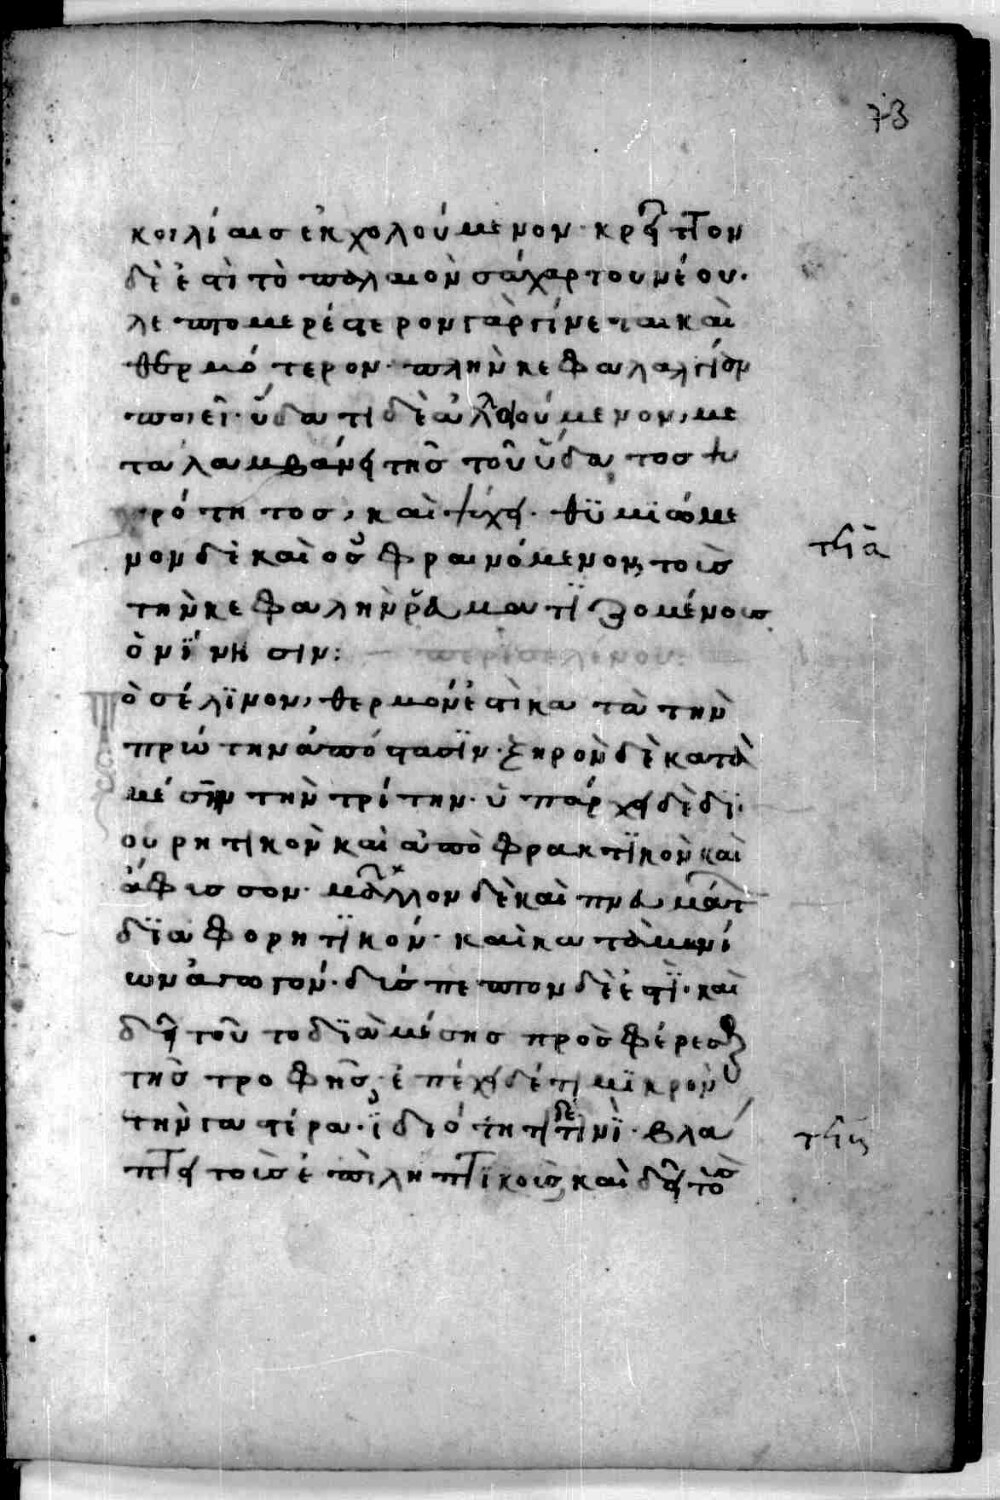 73
κοιλίαις ἐκχολούμενον· κρεῖττον
δὲ ἐστὶ τὸ παλαιὸν σάχαρ τοῦ νέου·
λεπτομερέστερον γὰρ γίνεται καὶ
θερμότερον· πλὴν κεφαλαλγίαν
ποιεῖ· ὕδατι δὲ ἀλθούμενον, με
ταλαμβάνει τῆς τοῦ ὕδατος ψυ
χρότητος, καὶ ψύχει· θυμιώμε
νον δὲ καὶ ὀσφραινόμενον, τοῖς
τὴν κεφαλὴν ῥευματιζομένοις
ὀνίνησιν: περὶ σελίνου:
ὸ σέλινον, θερμόν ἐστι κατὰ τὴν
πρώτην ἀπόστασιν· ξηρὸν δὲ κατὰ
μέσην τὴν τρίτην· ὑπάρχει δὲ δι
ουρητικὸν καὶ ἀποφρακτικὸν καὶ
ἄφυσσον· μᾶλλον δὲ καὶ πνευμάτ
διαφορητικόν· καὶ καταμηνί
ων ἀγωγόν· δύσπεπτον δὲ ἐστὶ· καὶ
δεῖ τοῦτο διὰ μέσης προσφέρεσθ
τῆς τροφῆς, ἐπέχει δέ τι μικρὸν
τὴν γαστέρα· ἰδιότητι δέ τινὶ βλά
πτει τοῖς ἐπιληπτικοῖς, καὶ δεῖ τοὺς